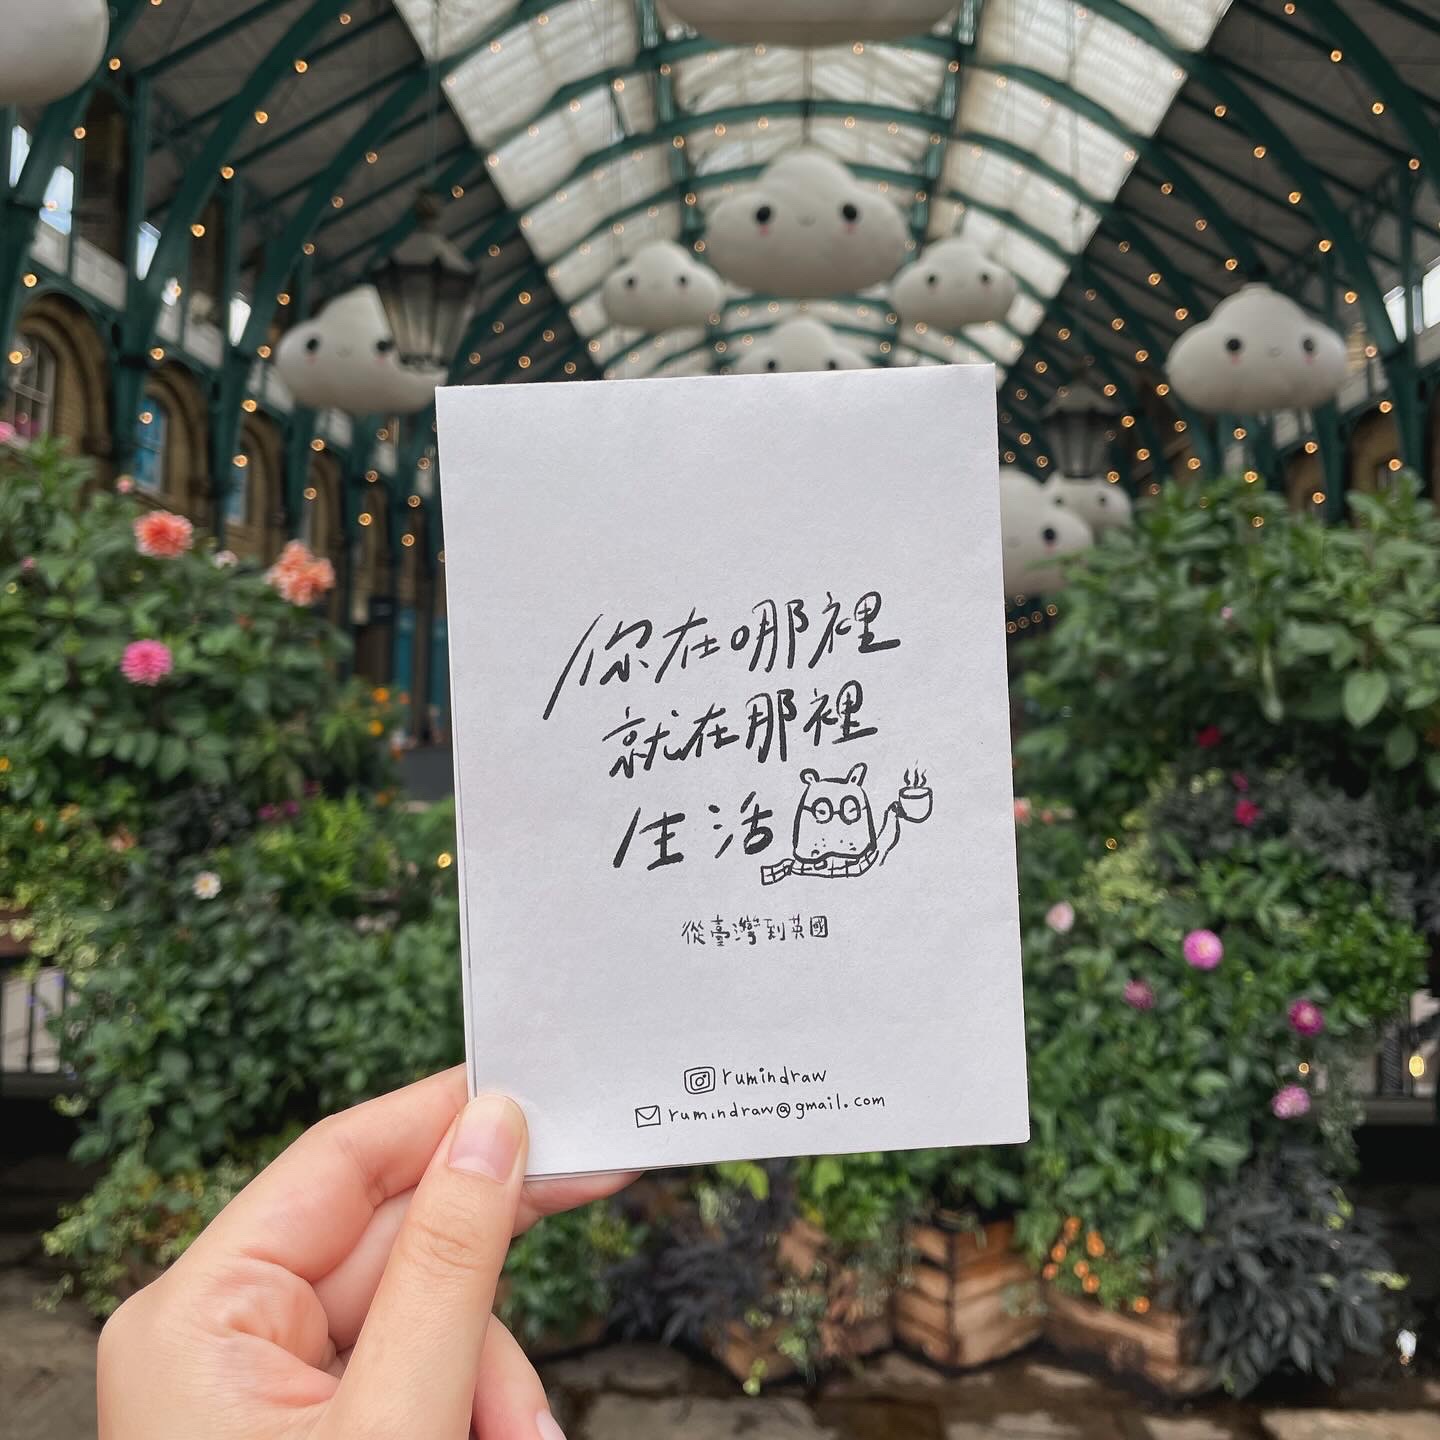 你在哪裡
就在那裡
生活
從臺灣到英國
rumindraw
rumindraw@gmail.com